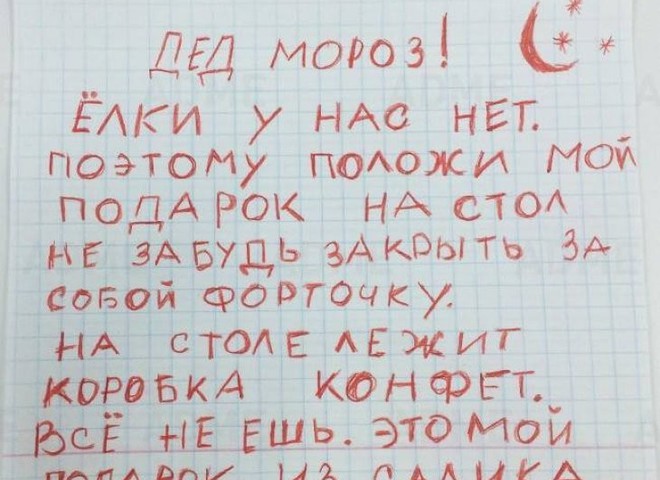 ДЕД МОРОЗ!
ЁЛКИ У НАС НЕТ.
ПОЭТОМУ ПОЛОЖИ МОЙ
ПОДАРОК НА СТОЛ
НЕ ЗАБУДЬ ЗАКРЫТЬ ЗА
СОБОЙ ФОРТОЧКУ.
НА СТОЛЕ ЛЕЖИТ
КОРОБКА КОНФЕТ.
ВСЁ НЕ ЕШЬ. ЭТО МОЙ
ПОДАРОК ИЗ САДИКА